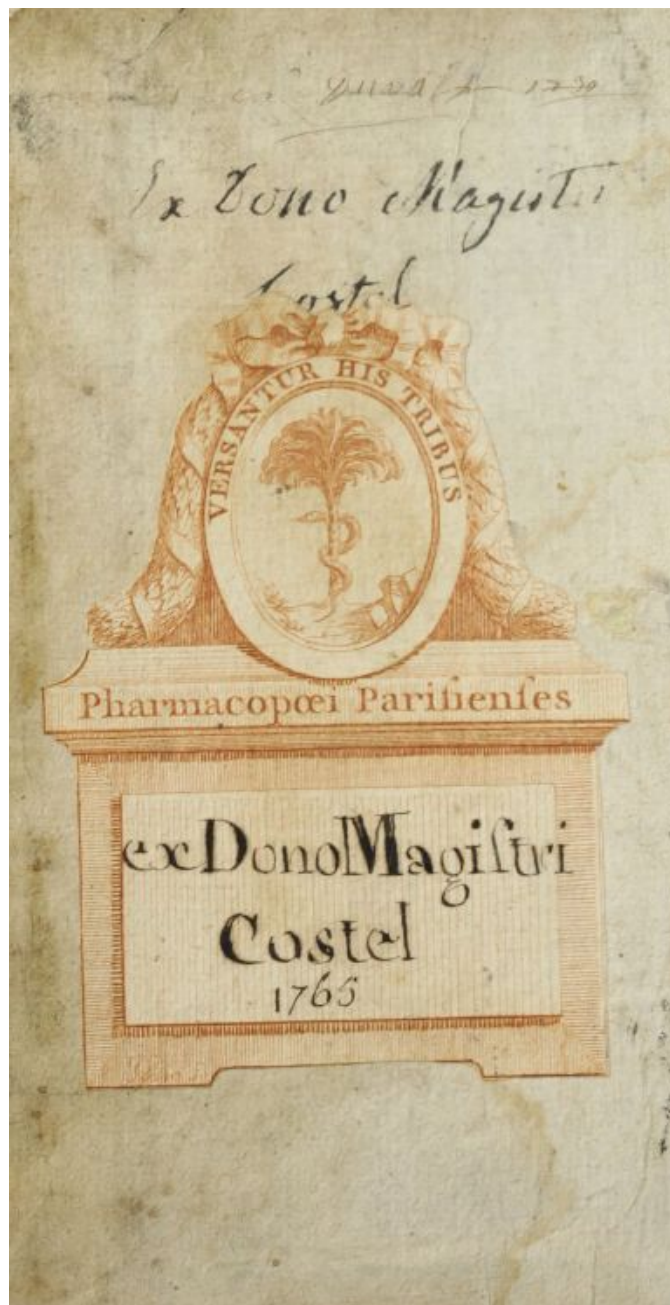 Ex Dono Magistri
Costel
VERSANTUR HIS TRIBUS
Pharmacopœi Pariſienſes
ex Dono Magiſtri
Costel
1765